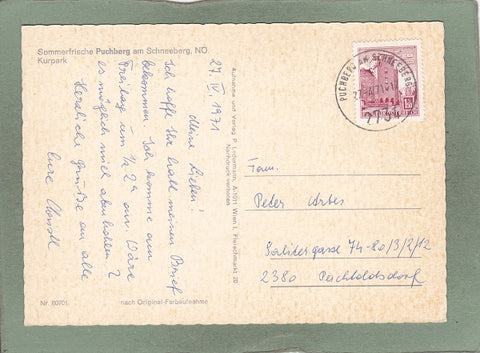 Sommerfrische Puchberg am Schneeberg, NÖ.
Kurpark
27. IV. 1971
Meine Lieben!
Ich hoffe Ihr habt meinen Brief
bekommen. Ich komme am
Freitag um 1/2 2h an. Wäre
es möglich mich abzuholen?
Herzliche Grüße an alle
Eure
Nr. 60701
nach Original-Farbaufnahme
Aufnahme und Verlag P. Ledermann, A-1011 Wien I, Fleischmarkt 20
Nachdruck verboten
PUCHBERG AM SCHNEEBERG
2734
Fam.
Peter
74-80/3/2/12
2380 Perchtoldsdorf